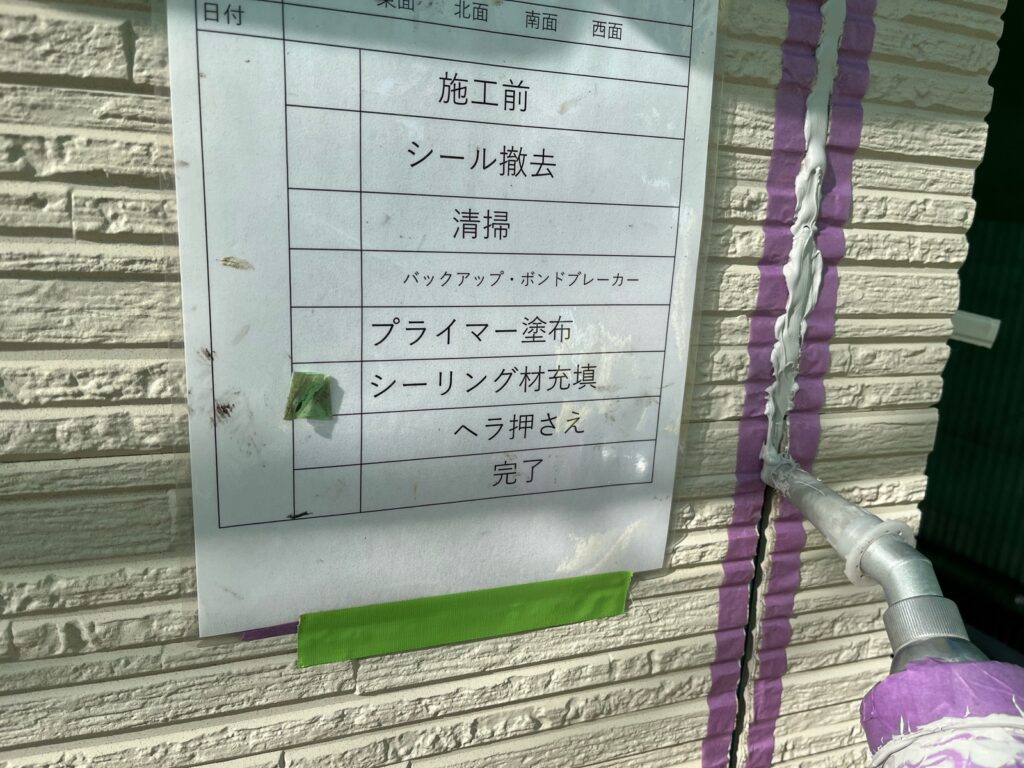 東面 北面 南面 西面
日付
施工前
シール撤去
清掃
バックアップ・ボンドブレーカー
プライマー塗布
シーリング材充填
ヘラ押さえ
完了